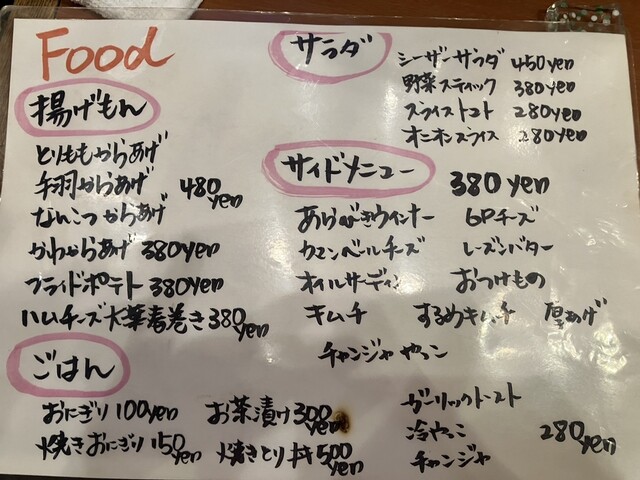 Food
揚げもん
とりももからあげ
手羽からあげ 480yen
なんこつからあげ
かわからあげ 380yen
フライドポテト 380yen
ハムチーズ大葉春巻き 380yen
ごはん
おにぎり 100yen お茶漬け 300yen
焼きおにぎり 150yen 焼きとり丼 500yen
サラダ
シーザーサラダ 450yen
野菜スティック 380yen
スライストマト 280yen
オニオンスライス 280yen
サイドメニュー 380yen
あらびきウインナー 6Pチーズ
カマンベールチーズ レーズンバター
オイルサーディン おつけもの
キムチ するめキムチ 厚あげ
チャンジャやっこ
ガーリックトースト
冷やっこ 280yen
チャンジャ